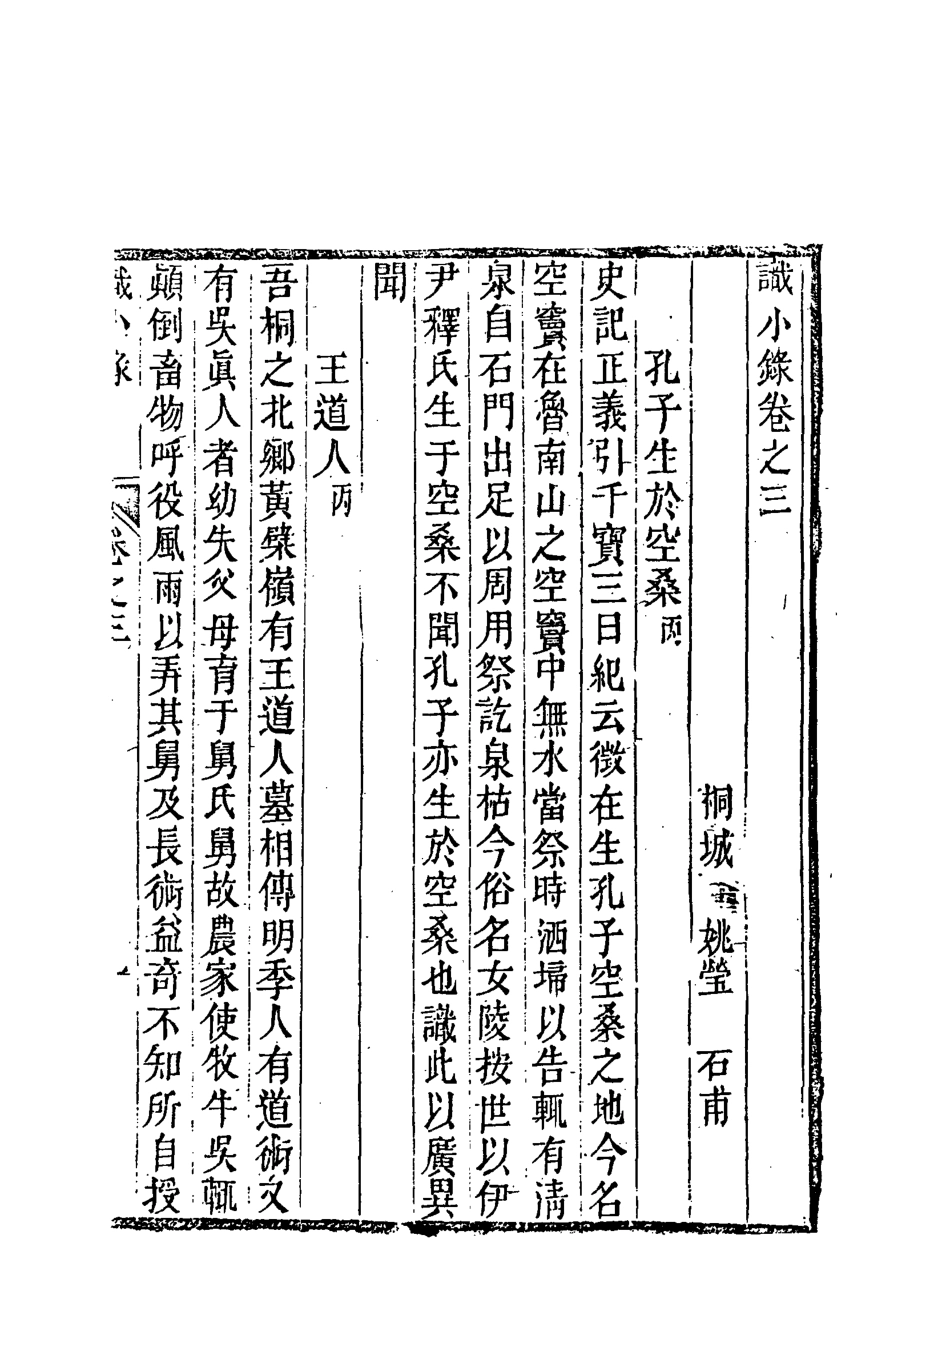 識小錄卷之三
桐城 姚瑩 石甫
孔子生於空桑丙
史記正義引千寶三日紀云徵在生孔子空桑之地今名
空竇在魯南山之空竇中無水當祭時洒埽以告輒有清
泉自石門出足以周用祭訖泉枯今俗名女陵按世以伊
尹釋氏生于空桑不聞孔子亦生於空桑也識此以廣異
聞
王道人丙
吾桐之北鄉黃檗嶺有王道人墓相傳明季人有道術又
有吳眞人者幼失父母育于舅氏舅故農家使牧牛吳輒
顚倒畜物呼役風雨以弄其舅及長術益奇不知所自授
識小錄 卷之三 一